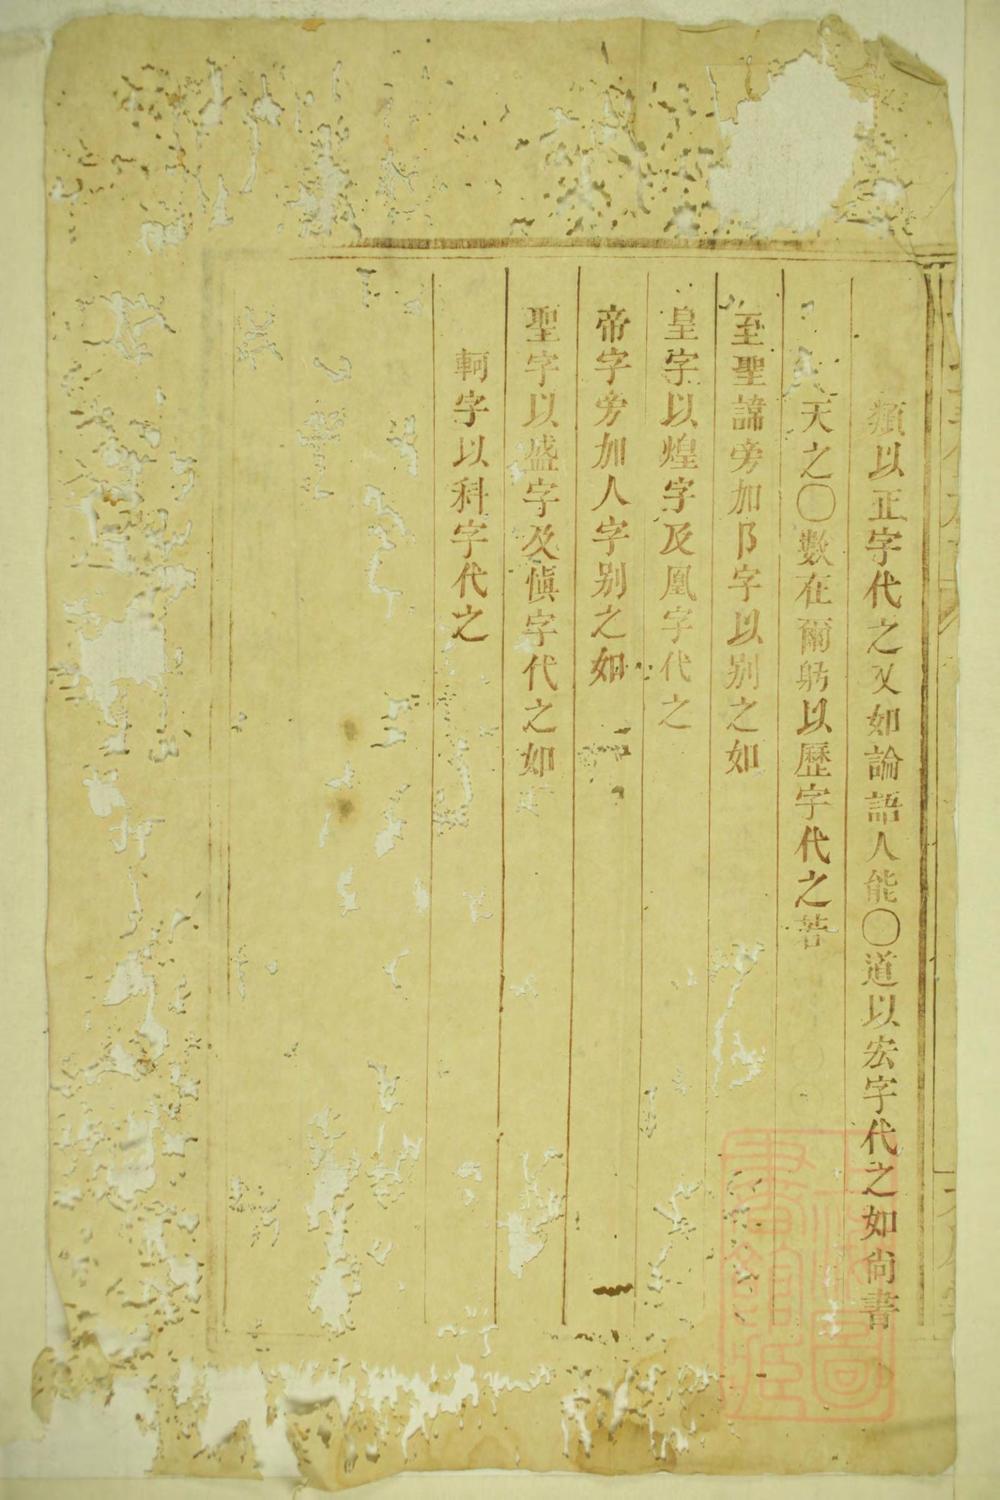 類以正字代之又如論語人能〇道以宏字代之如尙書
天之〇數在爾躬以歷字代之若
至聖諱旁加阝字以别之如
皇字以煌字及凰字代之
帝字旁加人字别之如
聖字以盛字及愼字代之如
軻字以科字代之